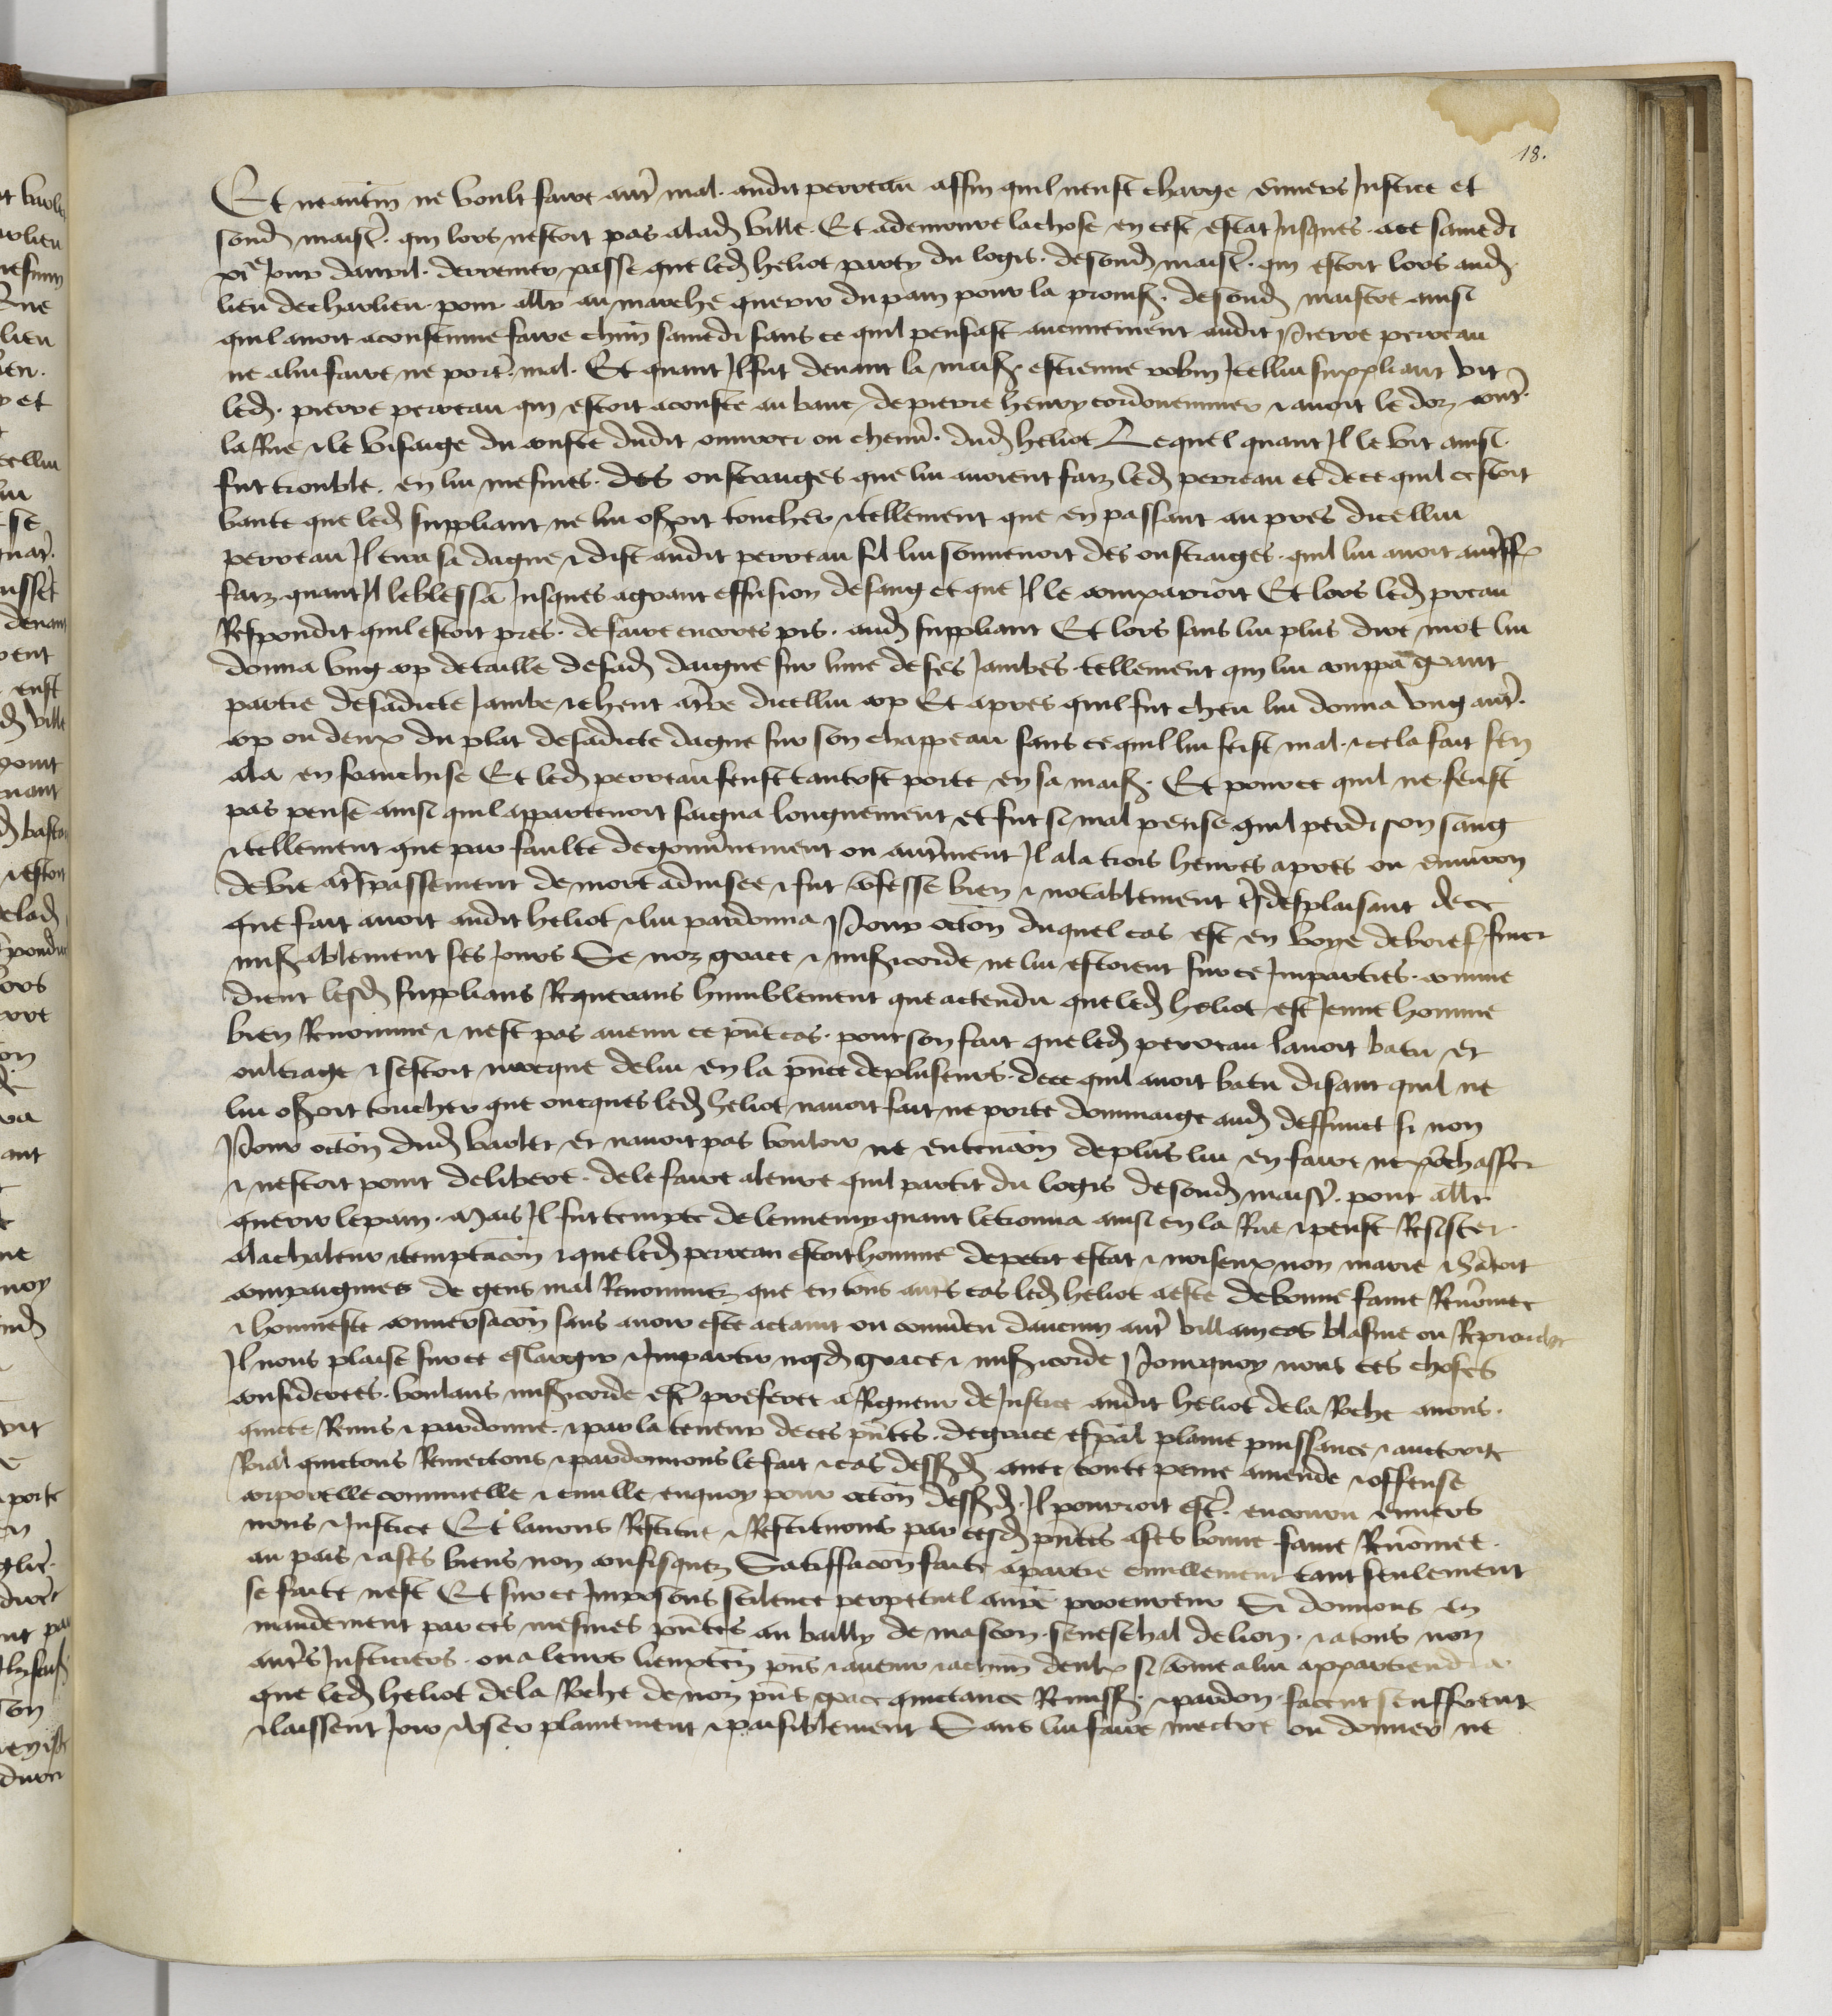 18.
Et neantm̄ ne voult faire autr̃ mal. audit perreau affin quil neust charge enuers Justice et
sond maist̃. qui lors nestoit pas alad ville. Et ademoure lachose en cest estat Jusques. ace samedi
xie Jour dauril. derrenier passe que led heliot party du logis. desond maist̃. qui estoit lors aud
lieu decharlieu pour allr̃ au marche querir du pain pour la prouis. desond maistre ainsi
quil auoit acoustume faire chun samedi sans ce quil pensast aucunement audit Pierre perreau
ne alui faire ne port̃. mal. Et quant Jl fut deuant la mais. estienne robin Jcellui suppliant vit
led. pierre perreau qui estoit acouste au banc de pierre henry cordouennier & auoit le doz contr̃.
la Rue & le visaige du couste dudit ouurer ou chemi. dud heliot Lequel quant Jl le vit ainsi.
fut trouble. en lui mesmes. des oustraiges que lui auoient faiz led perreau et dece quil cestoit
vante que led suppliant ne lui osoit toucher & tellement que en passant au pres dicellui
perreau Jl tira sa dague & dist audit perreau sil lui souuenoit des oustraiges. quil lui auoit autrffx
faiz quant Jl leblessa Jusques agrant effusion desang et que Jl le comparroit Et lors led preau
Respondit quil estoit pres. defaire encores pis. aud suppliant Et lors sans lui plus dire mot lui
donna vng cop detaille desad daigue sur lune deses Jambes tellement qui lui couppa grant
partie desadicte Jambe & cheut atr̃re dicellui cop Et apres quil fut cheu lui donna vng autr̃.
cop ou deux du plat desadicte dague sur son chappeau sans ce quil lui feist mal. & cela fait sen
ala en franchise Et led perreau fenst tantost porte en sa mais. Et pource quil ne feust
pas pense ainsi quil appartenoit saigna longuement et fut si mal pense quil perdi son sang
& tellement que par faulte degouũnement ou autr̃ment Jl ala trois heures apres ou enuiron
devie atr̃spassement de mort aduisee & fut cofesse bien & notablement tr̃sdesplaisant dece
que fait auoit audit heliot & lui pardonna Pour occõn duquel cas est en voye debrief finer
misablement ses Jours Se noz grace & misicorde ne lui estoient sur ce Jmparties. comme
dient lesd supplians Requerans humblement que actendu que led heliot est Jeune homme
bien Renomme & nest pas auenu ce pñt cas. pour son fait que led perreau lauoit batu et
oultrage & sestoit mocque delui en la pñce deplusieurs. dece quil auoit batu disant quil ne
lui osoit toucher que oncques led heliot nauoit fait ne porte dommaige aud deffunct si non
Pour occõn dud varlet Et nauoit pas vouloir ne entencõn deplus lui en faire ne pr̃chasser
& nestoit point delibere. dele faire aleure quil partit du logis desond maist̃. pour allr̃
querir lepain. Mais Jl fut tempte de lennemy quant letrouua ainsi en la Rue & peust Resister
alachaleur & temptacõn & que led perreau estoit homme depetit estat & noiseux non marie & hãtoit
compaignies de gens mal Renommez que en tous autr̃s cas led heliot aeste debonne fame Renõmee
& honneste conuersacõn sans auoir este actaint ou conuẽcu daucun autr̃ villain cas blasme ou Reprouche
Jl nous plaise sur ce eslargir & Jmpartir nosd grace & misicorde Pourquoy nous ces choses
considerees. voulans misicorde est̃ preferee a Rigueur de Justice audit heliot dela Roche auons.
quicte Remis & pardonne. & par la teneur deces pñtes. degrace espãl plaine puissance & auctorite
Roial quictons Remectons & pardonnons le fait & cas dessd auec toute peine amende & offense
corporelle criminelle & ciuille enquoy pour occõn dessd. Jl pourroit est̃. encouru enuers
nous & Justice Et lauons Restitue & Restituons par cesd pñtes ases bonne fame Renõmee.
au pais & ases biens non confisquez Satiffacõn faite apartie ciuillement tant seulement
se faite nest Et sur ce Jmposons scilence perpetuel anr̃e procureur Si donnons en
mandement par ces mesmes pñtes au bailly de mascon. seneschal delion. & atous noz
autr̃s Justiciers. ou a leurs lieuxten̄ pñs & auenir & achũn deulx si cõme alui appartiendra
que led heliot dela Roche de noz pñt grace quictance Remiss. & pardon facent seuffrent
& laissent Joir & vser plainement & paisiblement Sans lui faire mectre ou donner ne